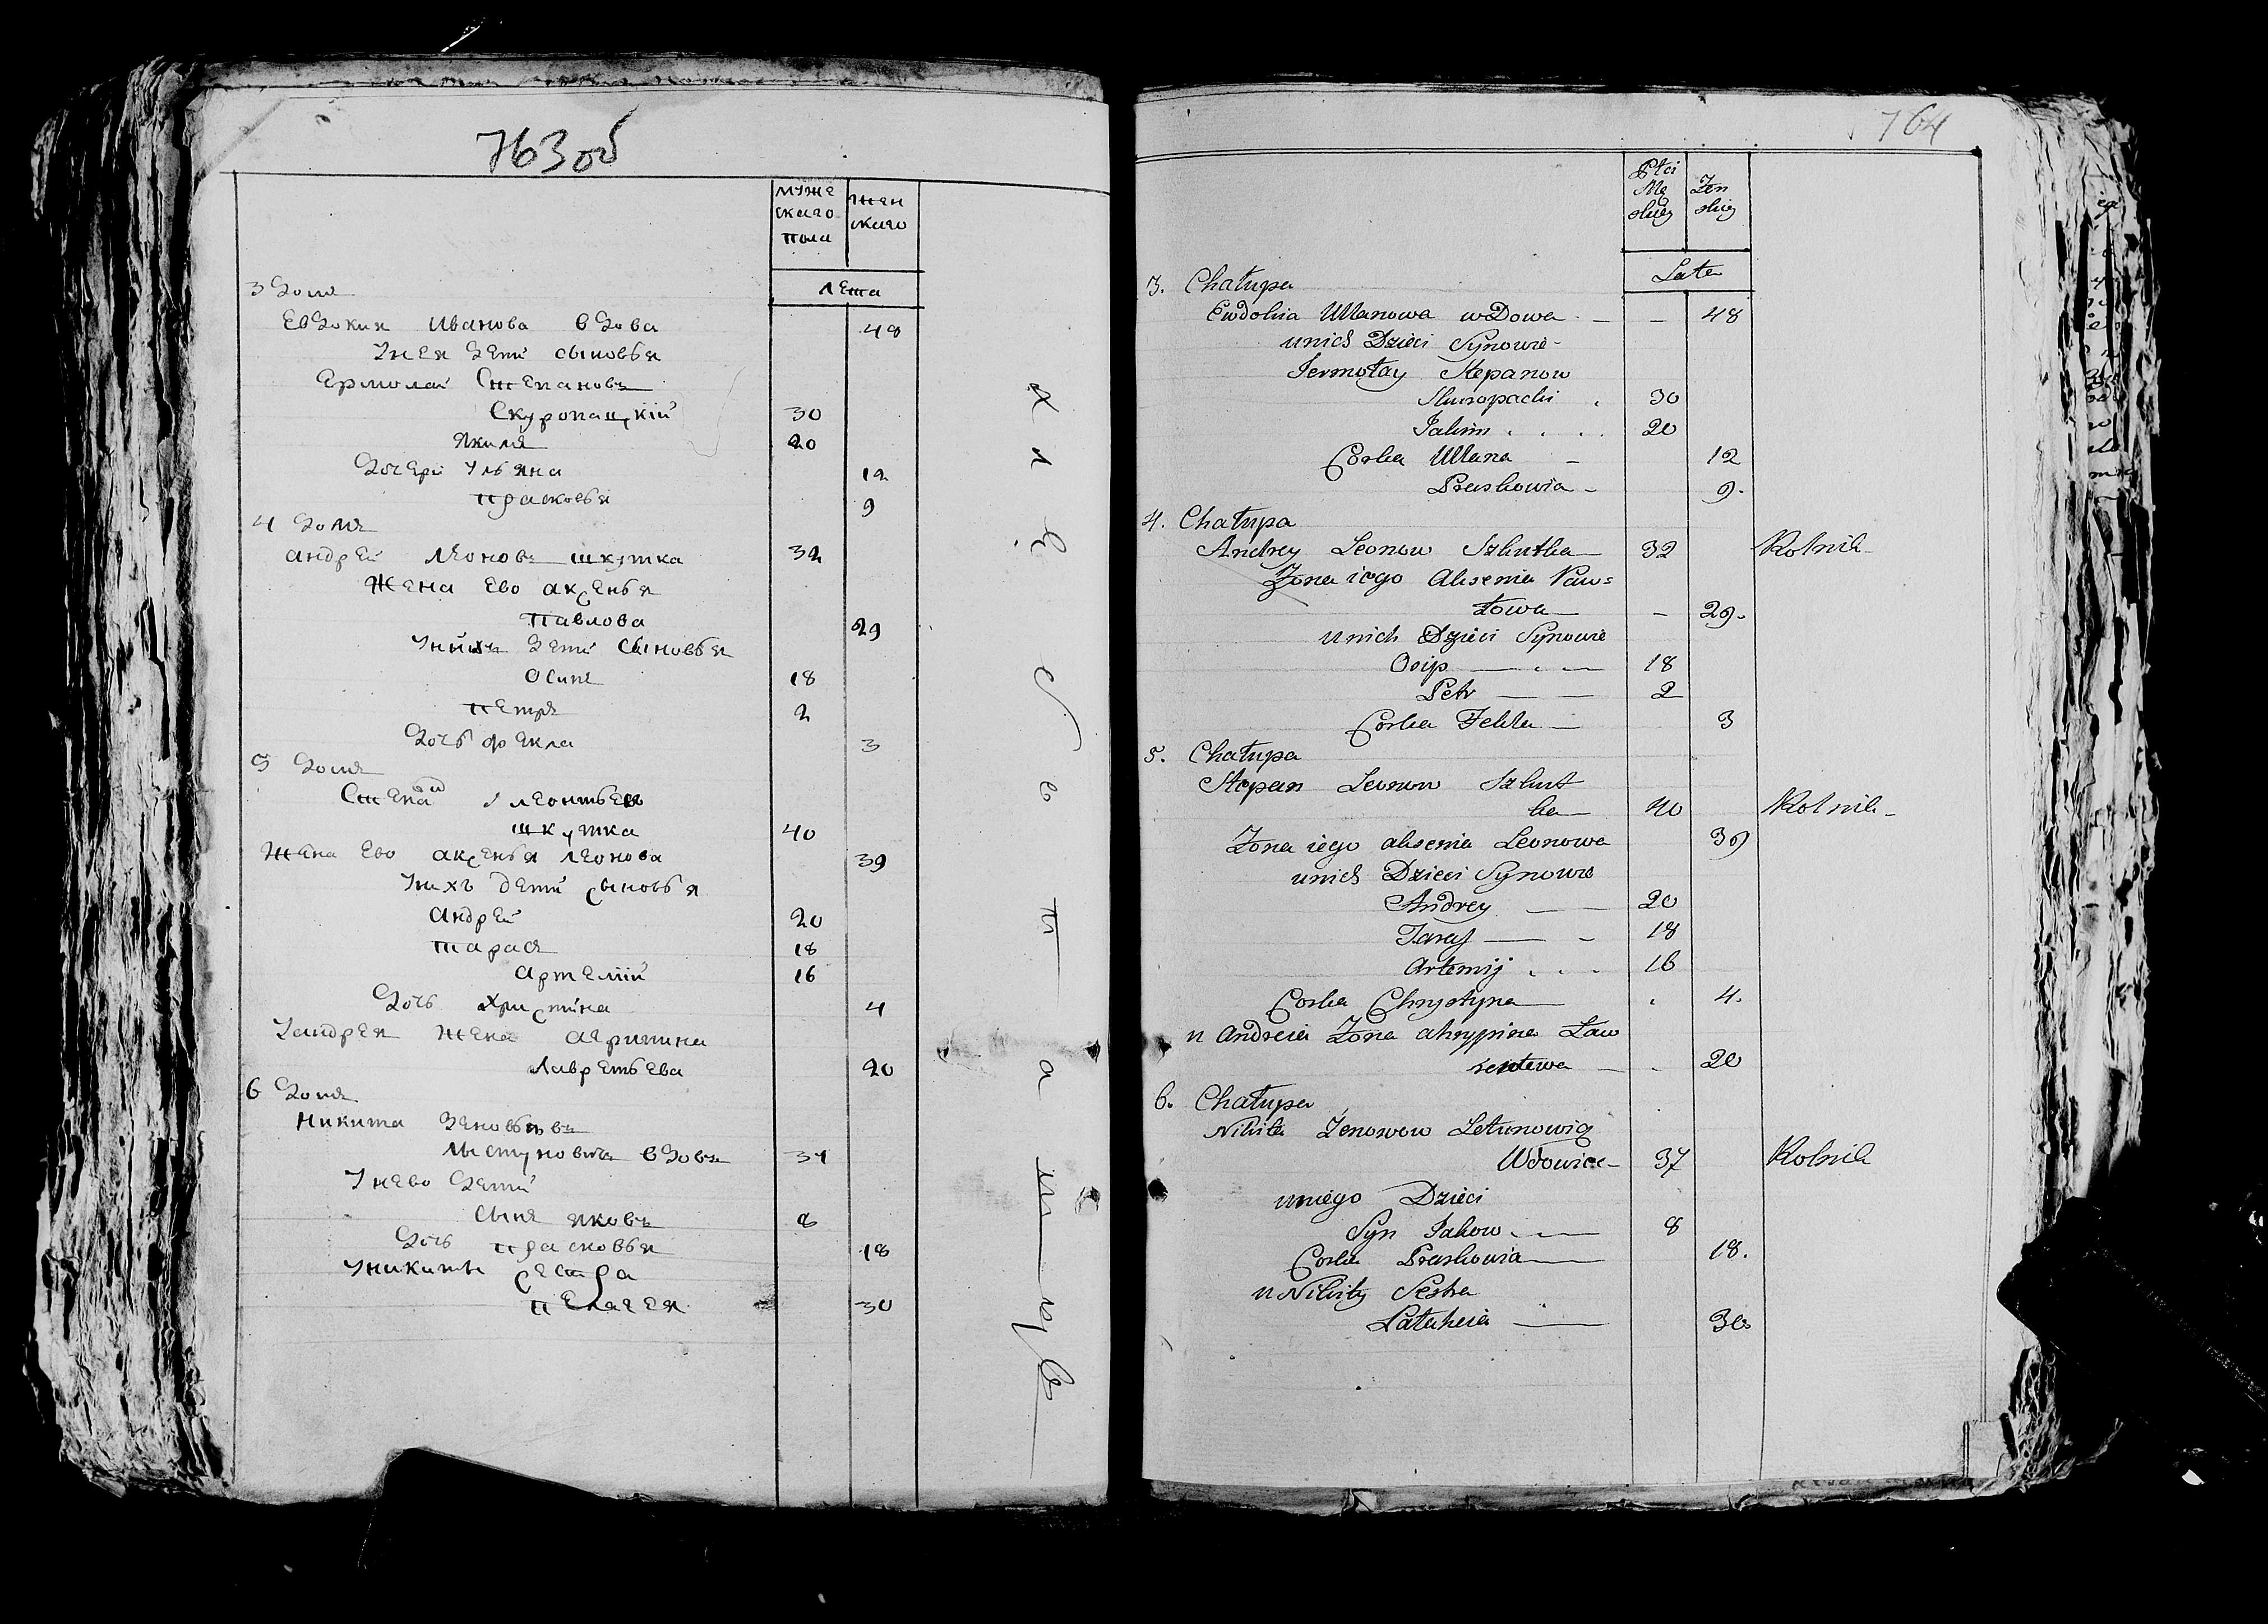 763об
мужескаго пола
женскаго
лета
3 домъ
Евдокия Иванова вдова 48
Унея дети сыновья
Ермолай Степановъ
Скуропацкiй 30
Якимъ 20
Дочери Ульяна 12
Прасковья 9
4 домъ
Андрей Леоновъ Шкутка 32
Жена ево Аксенья
Павлова 29
Унихъ дети сыновья
Осипъ 18
Петръ 2
Дочь Фекла 3
5 домъ
Степан Леонтьевъ
Шкутка 40
Жена ево Аксенья Леонова 39
Унихъ дети сыновья
Андрей 20
Тарасъ 18
Артемiй 16
Дочь Христина 4
Уандрея жена Агрипина
Лавретьева 20
6 домъ
Никита Зеновьевъ
вдовъ 37
Унево дети
Сынъ Яковъ 8
Дочь Прасковья 18
Уникиты сестра
Пелагея 30
хлебопашцъ
764
Płci Męskiey
Żenskiey
Lata
3. Chałupa
Ewdokia Ullanowa wdowa - - 48
unich Dzieci Synowie -
Jermołay Stepanow
Skuropacki . 30
Jakim . . . . 20
Corka Ullana - 12
Praskowia - 9.
4. Chałupa
Andrey Leonow Szkutka - 32 Rolnik -
Żona iego Aksenia Paw=
łowa - - 29.
unich Dzieci Synowie
Osip - . - 18
Petr - - 2
Corka Fekła - 3
5. Chałupa
Stepan Leonow Szkut
ka - 40 Rolnik -
Żona iego aksenia Leonowa 39
unich Dzieci Synowie
Andrey - - 20
Taras - - 18
Artemij . . . 16
Corka Chrystyna - . 4.
u Andreia Żona ahrypina Law
rentewa - . 20
6. Chałupa
Nikita Zenowow Letunowicz
Wdowiec - 37 Rolnik
uniego Dzieci
Syn Jakow . - 8
Corka Praskowia - 18.
u Nikity Sestra
Pałaheia - 30.